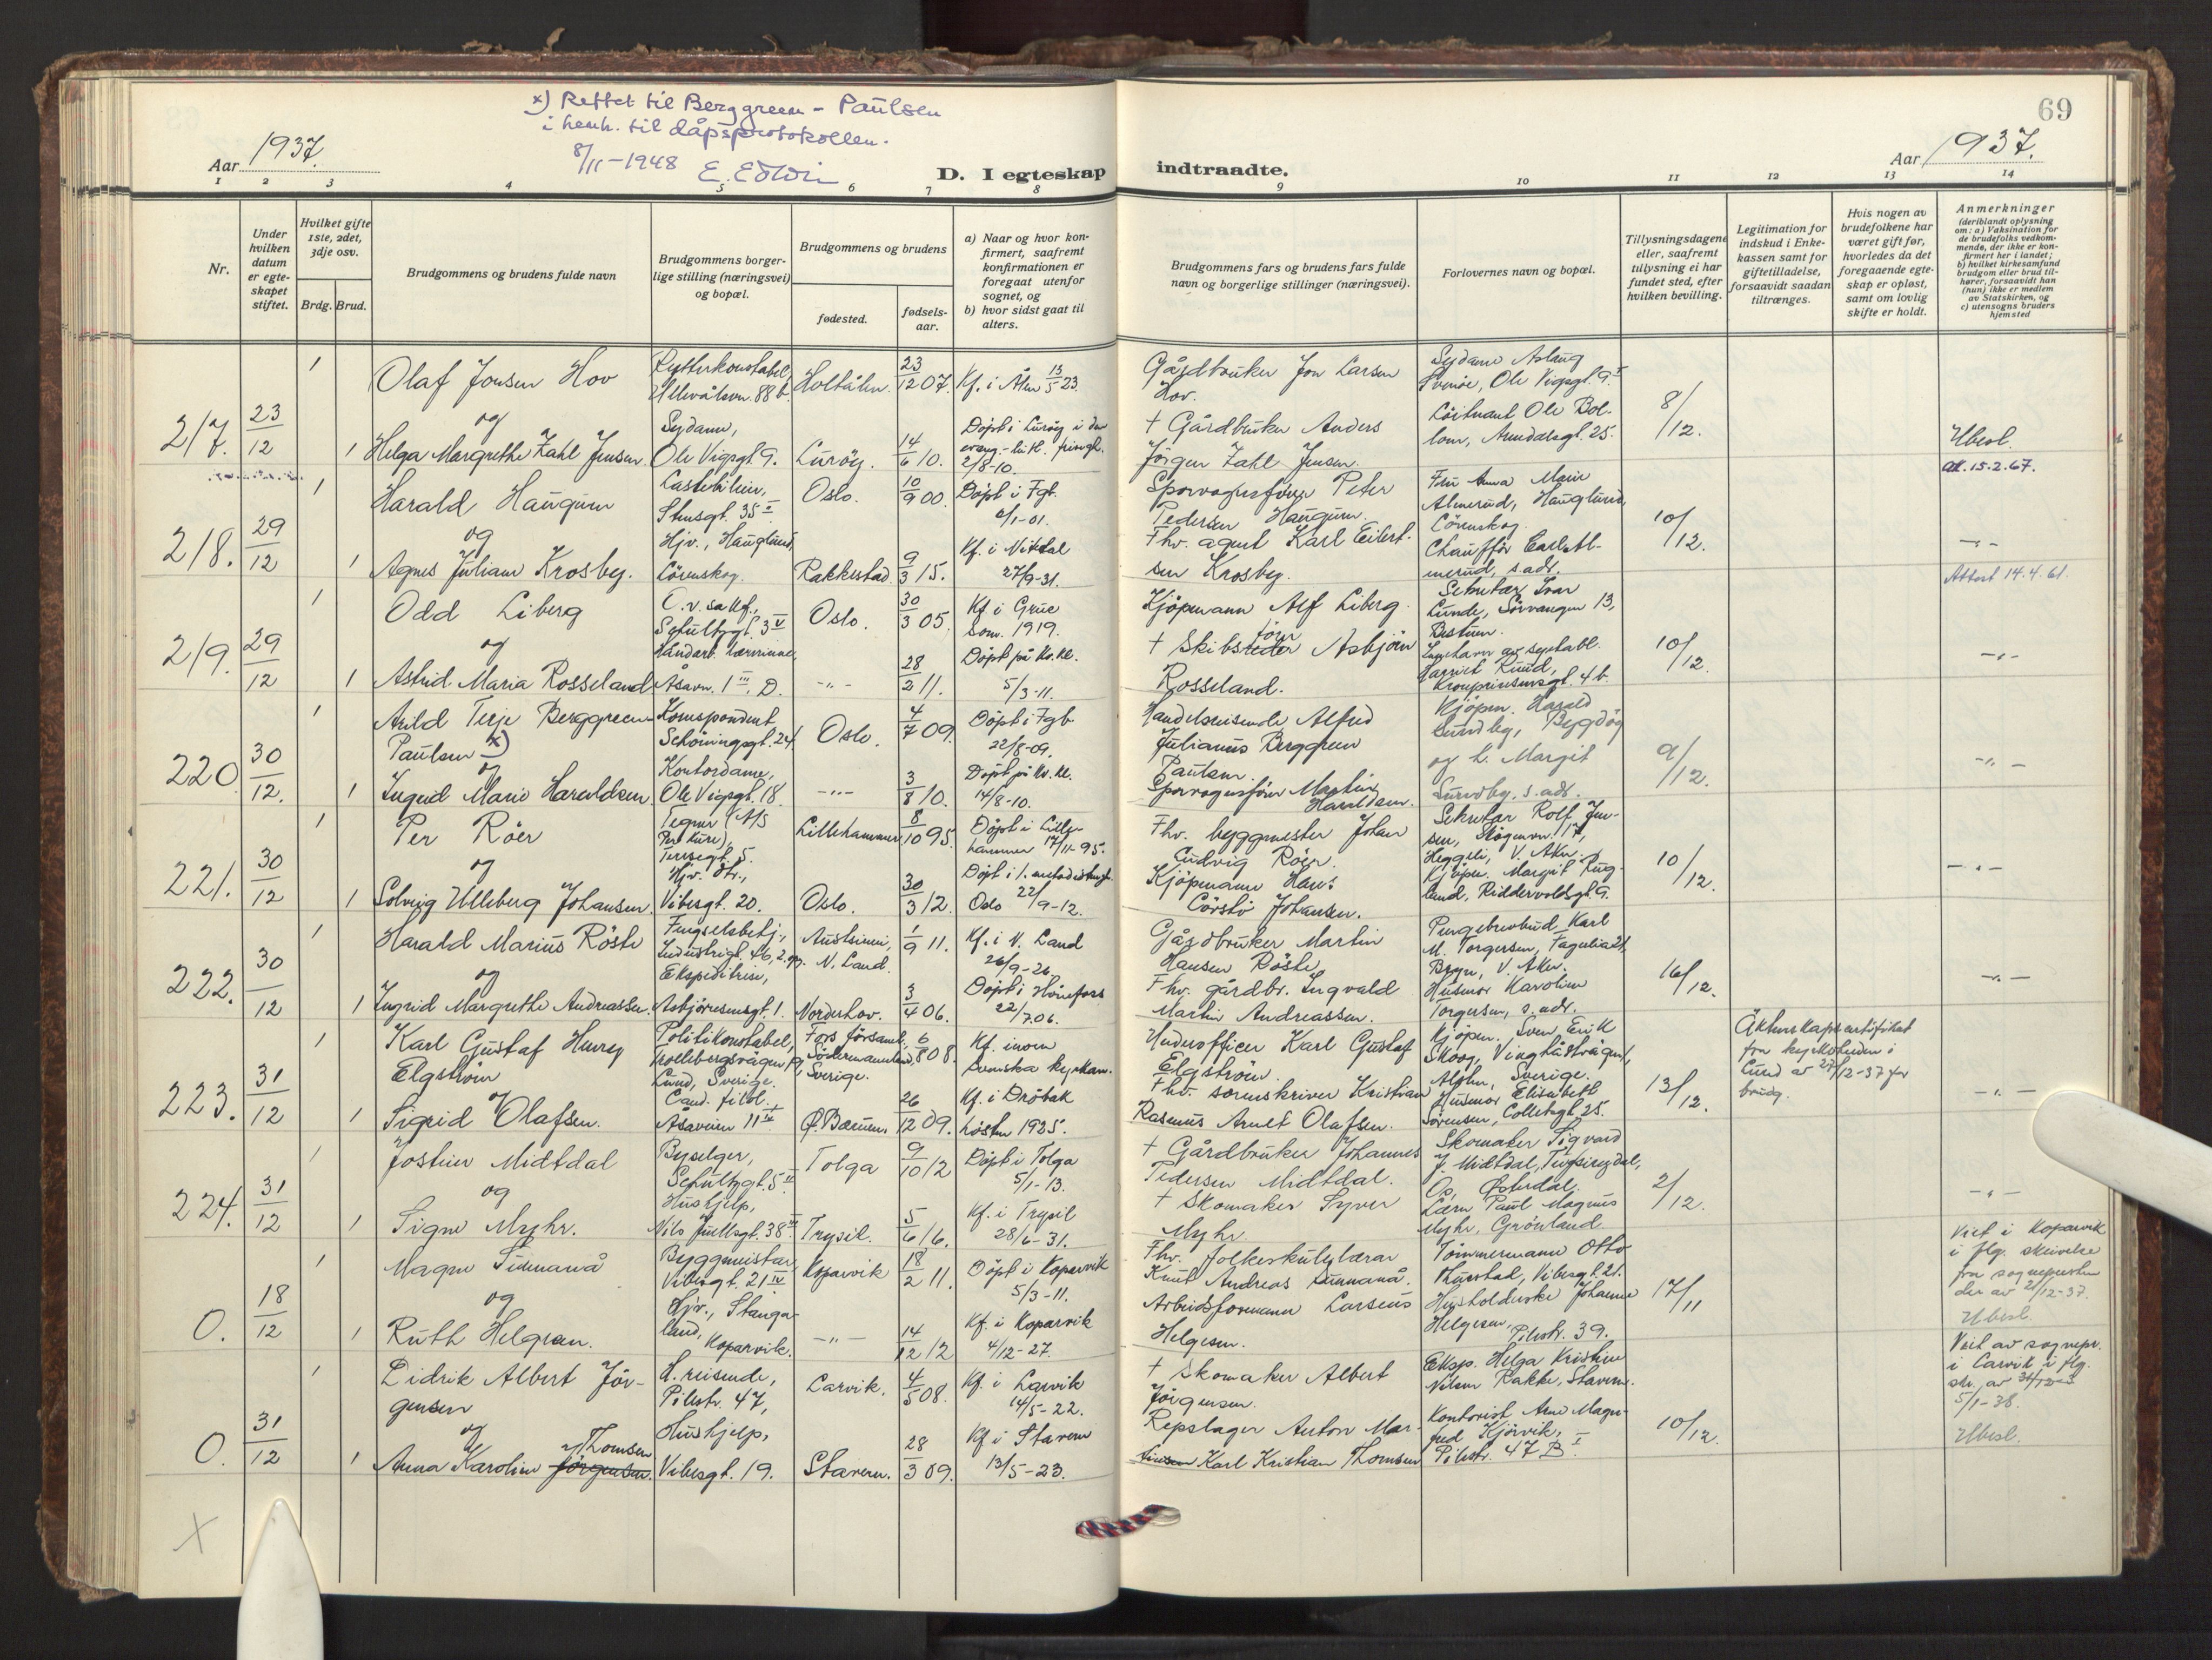 x) Rettet til Berggreen - Paulsen
i henh. til dåpsprotokollen.
8/11-1948
69
Aar 1937.
D. I egteskap indtraadte.
Aar 1937.
1 2 3 4 5 6 7 8 9 10 11 12 13 14
Nr.
Under hvilken datum er egteskapet stiftet.
Hvilket gifte 1ste, 2det, 3dje osv.
Brdg. Brud.
Brudgommens og brudens fulde navn
Brudgommens borgerlige stilling (næringsvei) og bopæl.
Brudgommens og brudens
fødested.
fødselsaar.
a) Naar og hvor konfirmert, saafremt konfirmationen er foregaat utenfor sognet, og
b) hvor sidst gaat til alters.
Brudgommens fars og brudens fars fulde navn og borgerlige stillinger (næringsvei).
Forlovernes navn og bopæl.
Tillysningsdagene eller, saafremt tillysning ei har fundet sted, efter hvilken bevilling.
Legitimation for indskud i Enkekassen samt for giftetilladelse, forsaavidt saadan tiltrænges.
Hvis nogen av brudefolkene har været gift før, hvorledes da det foregaaende egteskap er opløst, samt om lovlig skifte er holdt.
Anmerkninger
(deriblandt oplysning om: a) Vaksination for de brudefolks vedkommende, der ikke er konfirmert her i landet; b) hvilket kirkesamfund brudgom eller brud tilhører, forsaavidt han (hun) ikke er medlem av Statskirken, og c) utensogns bruders hjemsted
217. 23/12
1 Olaf Jonsen Hov
Rytterkonstabel, Ullevålsvn. 88 b.
Holtålen. 23/12 07.
Kf. i Ålen 13/5 23.
Gårdbruker Jon Larsen Hov.
Sydame Aslaug Svinøe, Ole Vigsgt. 9.
8/12.
og
1 Helga Margrethe Zahl Jensen.
Sydame, Ole Vigsgt. 9.
Lurøy. 14/6 10.
Døpt i Lurøy i den evang.-luth. frimgh. 2/8-10.
+ Gårdbruker Anders Jørgen Zahl Jensen.
Løitnant Ole Bollom, Arendalsgt. 25.
Ubesl.
att. 15.2.67.
218. 29/12
1 Harald Haugum
Lastebileier, Stensgt. 35
Oslo. 10/9 00.
Døpt i Fgb. 6/1-01.
Sporvognsfører Peter Pedersen Haugum.
Fru Anna Marie Almerud, Hauglund, Lørenskog.
10/12.
og
1 Agnes Juliane Krosby.
Hjv., Hauglund, Lørenskog.
Rakkestad. 9/3 15.
Kf. i Nittedal 27/9-31.
Fhv. agent Karl Eilertsen Krosby.
Chauffør Carl Almerud, s. adr.
-"-
Attest 14.4.61.
219. 29/12
1 Odd Liberg
O.r.sakf., Schultzgt. 3
Oslo. 30/3 05.
Kf. i Grue som. 1919.
Kjøpmann Alf Liberg.
Sekretær Ivar Lunde, Sørvangen 13, Bestum.
10/12.
og
1 Astrid Maria Rosseland
Håndarb. lærerinne, Åsavn. 1 III, D.
-"- 28/2 11.
Døpt på Kv.kl. 5/3-11.
+ Skibsfører Asbjørn Rosseland.
Harriet Ruud, Kronprinsensgt. 4 b.
-"-
220. 30/12.
1 Arild Terje Berggreen Paulsen x)
Korrespondent Schøningsgt. 24
Oslo. 4/7 09.
Døpt i Fgb 22/8-09.
Handelsreisende Alfred Julianus Berggreen Paulsen.
Kjøpm. Harald Sundby, Bygdøy
9/12.
og
1 Ingrid Marie Haraldsen
Kontordame, Ole Vigsgt. 18.
-"- 3/8 10.
Døpt på Kv.kl. 14/8-10.
Sporvognsfører Martin Haraldsen.
og h. Margit Sundby, s. adr.
-"-
221. 30/12
1 Per Röer
Tegner (A/S Per Kure), Teresegt. 5.
Lillehammer 8/10 95.
Døpt i Lillehammer 17/11-95.
Fhv. byggmester Johan Ludvig Röer.
Sekretær Rolf Jensen, Skogenvn. 17, Heggeli, V. Aker.
10/12.
og
1 Solveig Ulleberg Johansen.
Hjv. dtr., Vibesgt. 20.
Oslo. 30/3 12.
Døpt i 1. metodistmgh. Oslo 22/9-12.
Kjøpmann Hans Johansen.
Kjøpm. Margit Rugland, Riddervoldsgt. 9.
-"-
222. 30/12
1 Harald Marius Röste
Fengselsbetj., Industrigt. 46, 2.opg.
N. Land. 1/9 11.
Kf. i N. Land 26/9-26.
Gårdbruker Martin Hansen Röste
Pengebrevbud Karl M. Torgersen, Fagerlia 21, Bryn, V. Aker.
16/12.
og
1 Ingrid Margrethe Andreassen.
Ekspeditrise, Asbjørnsensgt. 1.
Norderhov. 3/4 06.
Døpt i Hønefoss 22/7.06.
Fhv. gårdbr. Ingvald Martin Andreassen.
Husmor Karoline Torgersen, s. adr.
-"-
223. 31/12
1 Karl Gustaf Henry Elgström
Politikonstabel, Lund, Sverige.
Fors församl., Södermanland, Sverige. 6/8 08.
Kf. inom Svenska kyrkan.
Underofficer Karl Gustaf Elgström.
Kjøpm. Sven Erik Skoog, Sverige.
13/12.
Äktenskapscertifikat fra kyrkoheden i Lund av 27/12-37 for brudg.
og
1 Sigrid Olafsen.
Cand. filol., Åsaveien 11
Ø. Bærum. 26/12 09.
Kf. i Drøbak høsten 1925.
Fhv. sorenskriver Kristian Rasmus Arnet Olafsen.
Husmor Elisabeth Sørensen, Colletsgt. 25.
-"-
224. 31/12
1 Jostein Midtdal
Byselger, Schultzgt. 5
Tolga 9/10 12
Døpt i Tolga 5/1-13.
+ Gårdbruker Johannes Pedersen Midtdal.
Skomaker Sigvard J. Midtdal,
2/12.
og
1 Signe Myhr.
Hushjelp, Nils Juelsgt. 38
Trysil. 5/6 16.
Kf. i Trysil 28/6-31.
+ Skomaker Syver Myhr.
Lærer Paul Magnus Myhr, Grønland.
-"-
0. 18/12
1 Magne
Byggmeistar, Vibesgt. 21 IV
Koparvik 18/2 11.
Døpt i Koparvik 5/3-11.
Fhv. folkeskulelærar Knut Andreas
Tømmermann Otto Thurstad, Vibesgt. 21.
17/11
Viet i Koparvik i flg. skrivelse fra sogneprsten der av 21/12-37.
og
1 Ruth Helgesen.
Hjv., Stangaland, Koparvik.
-"- 14/12 12
Kf. i Koparvik 4/12-27.
Arbeidsformann Larsens Helgesen.
Husholderske Johanne Helgesen, Pilestr. 39.
Ubesl.
0. 31/12
1 Didrik Albert Jörgensen
H. reisende, Pilestr. 47,
Larvik. 4/5 08.
Kf. i Larvik 14/5-22.
+ Skomaker Albert Jörgensen.
Eksp. Helga Kristine Nilsen Rakke, Stavern.
10/12.
Viet av sognepr. i Larvik i flg. skr. av 5/1-38.
og
1 Anna Karoline Jörgensen. Thomsen
Hushjelp, Vibesgt. 19.
Stavern. 28/3 09.
Kf i Stavern 13/5-23.
Repslager Anton Martinsen Karl Kristian Thomsen
Kontorist Arne Magnfred Kjörvik, Pilestr. 47 B.
Ubesl.
X